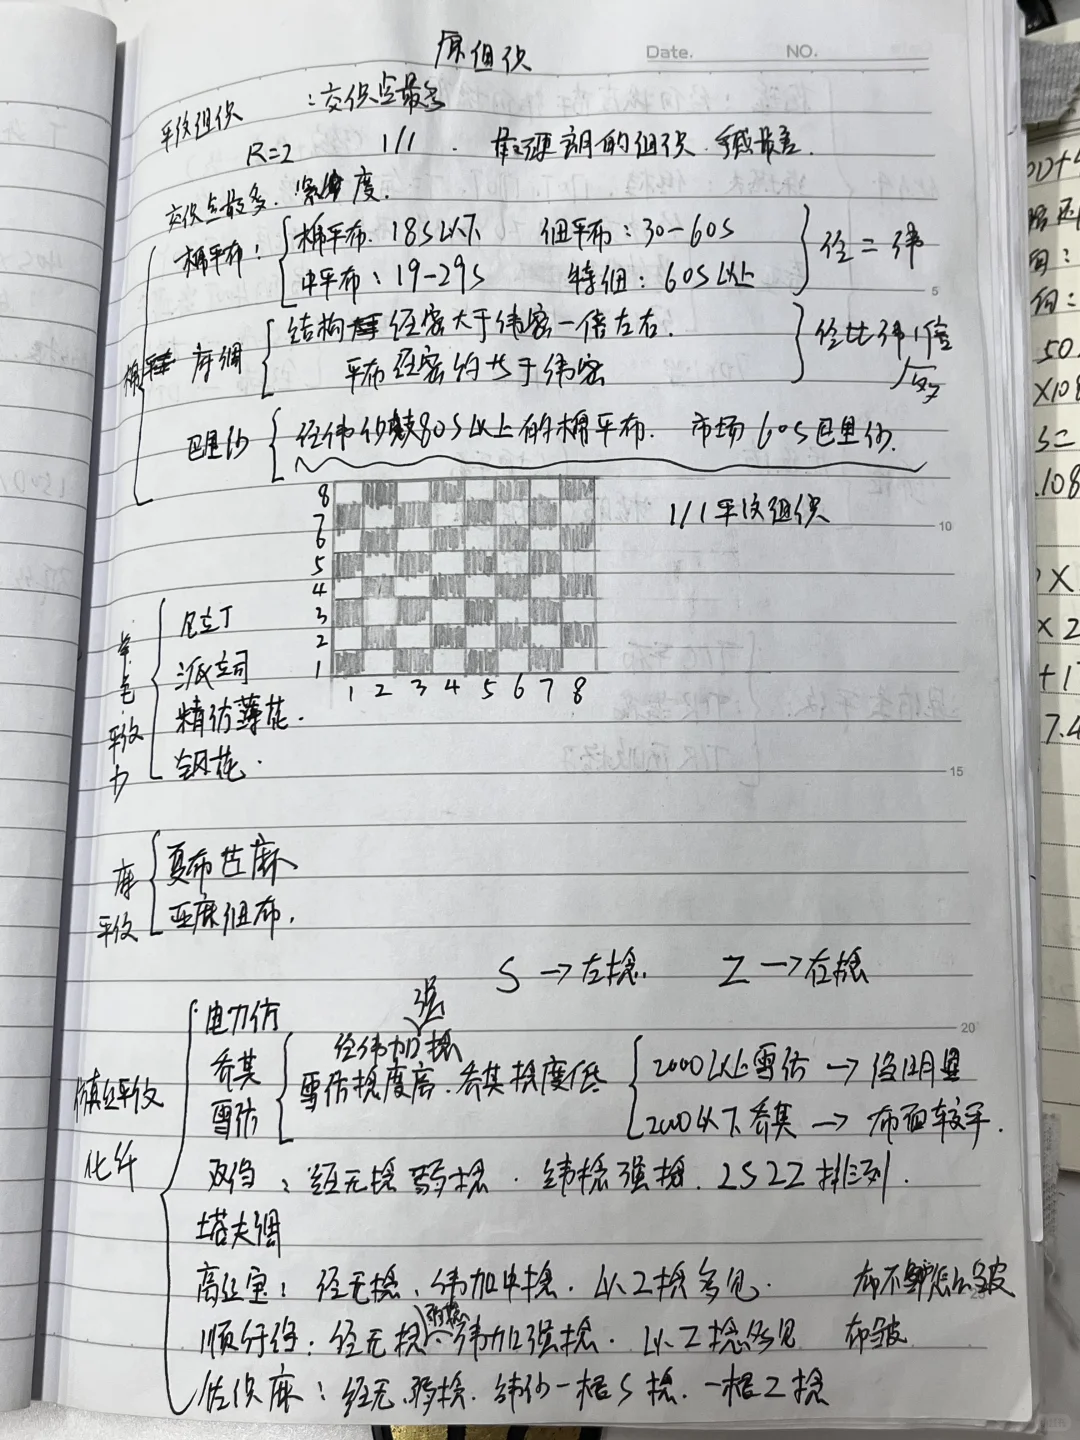 原组织
Date. NO.
平纹组织 :交织点最多
R=2 1/1 . 最硬 的组织. 手感最差.
交织点最多. 紧 度.
棉平布: 粗平布. 18S以下 细平布:30-60S
中平布:19-29S 特细:60S以上
经=纬
府绸 结构 经密大于纬密一倍左右.
平布经密约 于纬密
经比纬1倍
左右
巴里纱 经纬纱 80S以上的棉平布. 市场60S巴里纱.
1/1平纹组织
8
7
6
5
4
3
2
1
1 2 3 4 5 6 7 8
5
10
15
20
25
毛
平纹
凡立丁
派立司
精纺薄花.
钢花.
麻
平纹
夏布苎麻
亚麻细布.
S→左捻. Z→右捻
平纹
化纤
电力纺
乔其
雪纺
强
经纬加捻
雪纺捻度高.乔其捻度低
2000以上雪纺→绉明显
2000以下乔其→布面较平.
双绉:经无捻弱捻. 纬捻强捻. 2S2Z排列.
塔夫绸
高丝宝:经无捻、纬加中捻. 以Z捻多见. 布不 皱
顺纡绉:经无捻 弱捻 纬加强捻. 以Z捻多见 布皱
佐织麻:经无.弱捻. 纬纱一根S捻. 一根Z捻